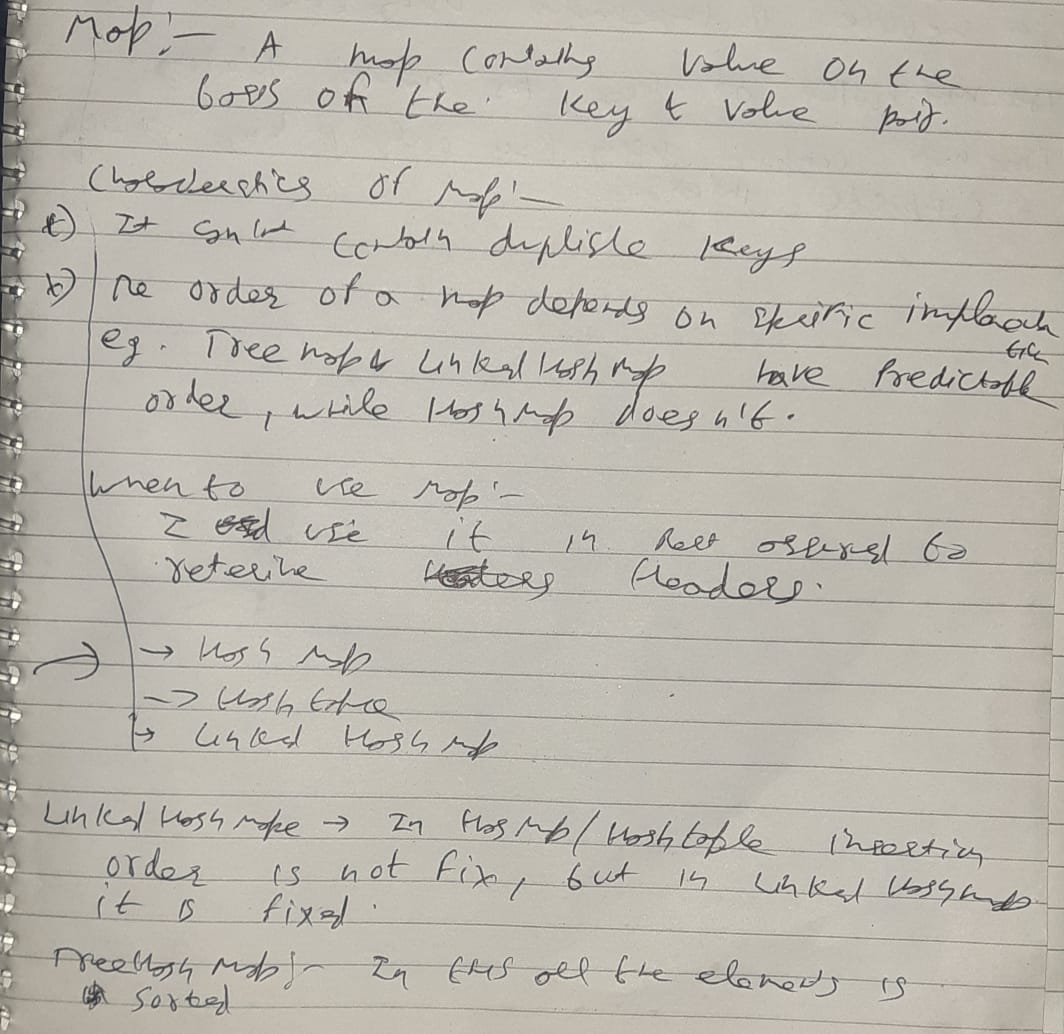 Map:- A map contains value on the
basis of the key & value pair.
Characteristics of Map:-
a) It can't contain duplicate keys
b) The order of a map depends on specific implementation
eg. Tree map & Linked Hash Map have Predictable
order, while Hash Map does n't.
When to use Map:-
I use it in Rest assured to
reterive Headers.
→ Hash Map
→ Hash table
→ Linked Hash Map
Linked Hash mape → In Has Map/Hash table insertion
order is not fix, but in Linked Hash map
it is fixed.
Tree Hash Map:- In this all the elements is
sorted